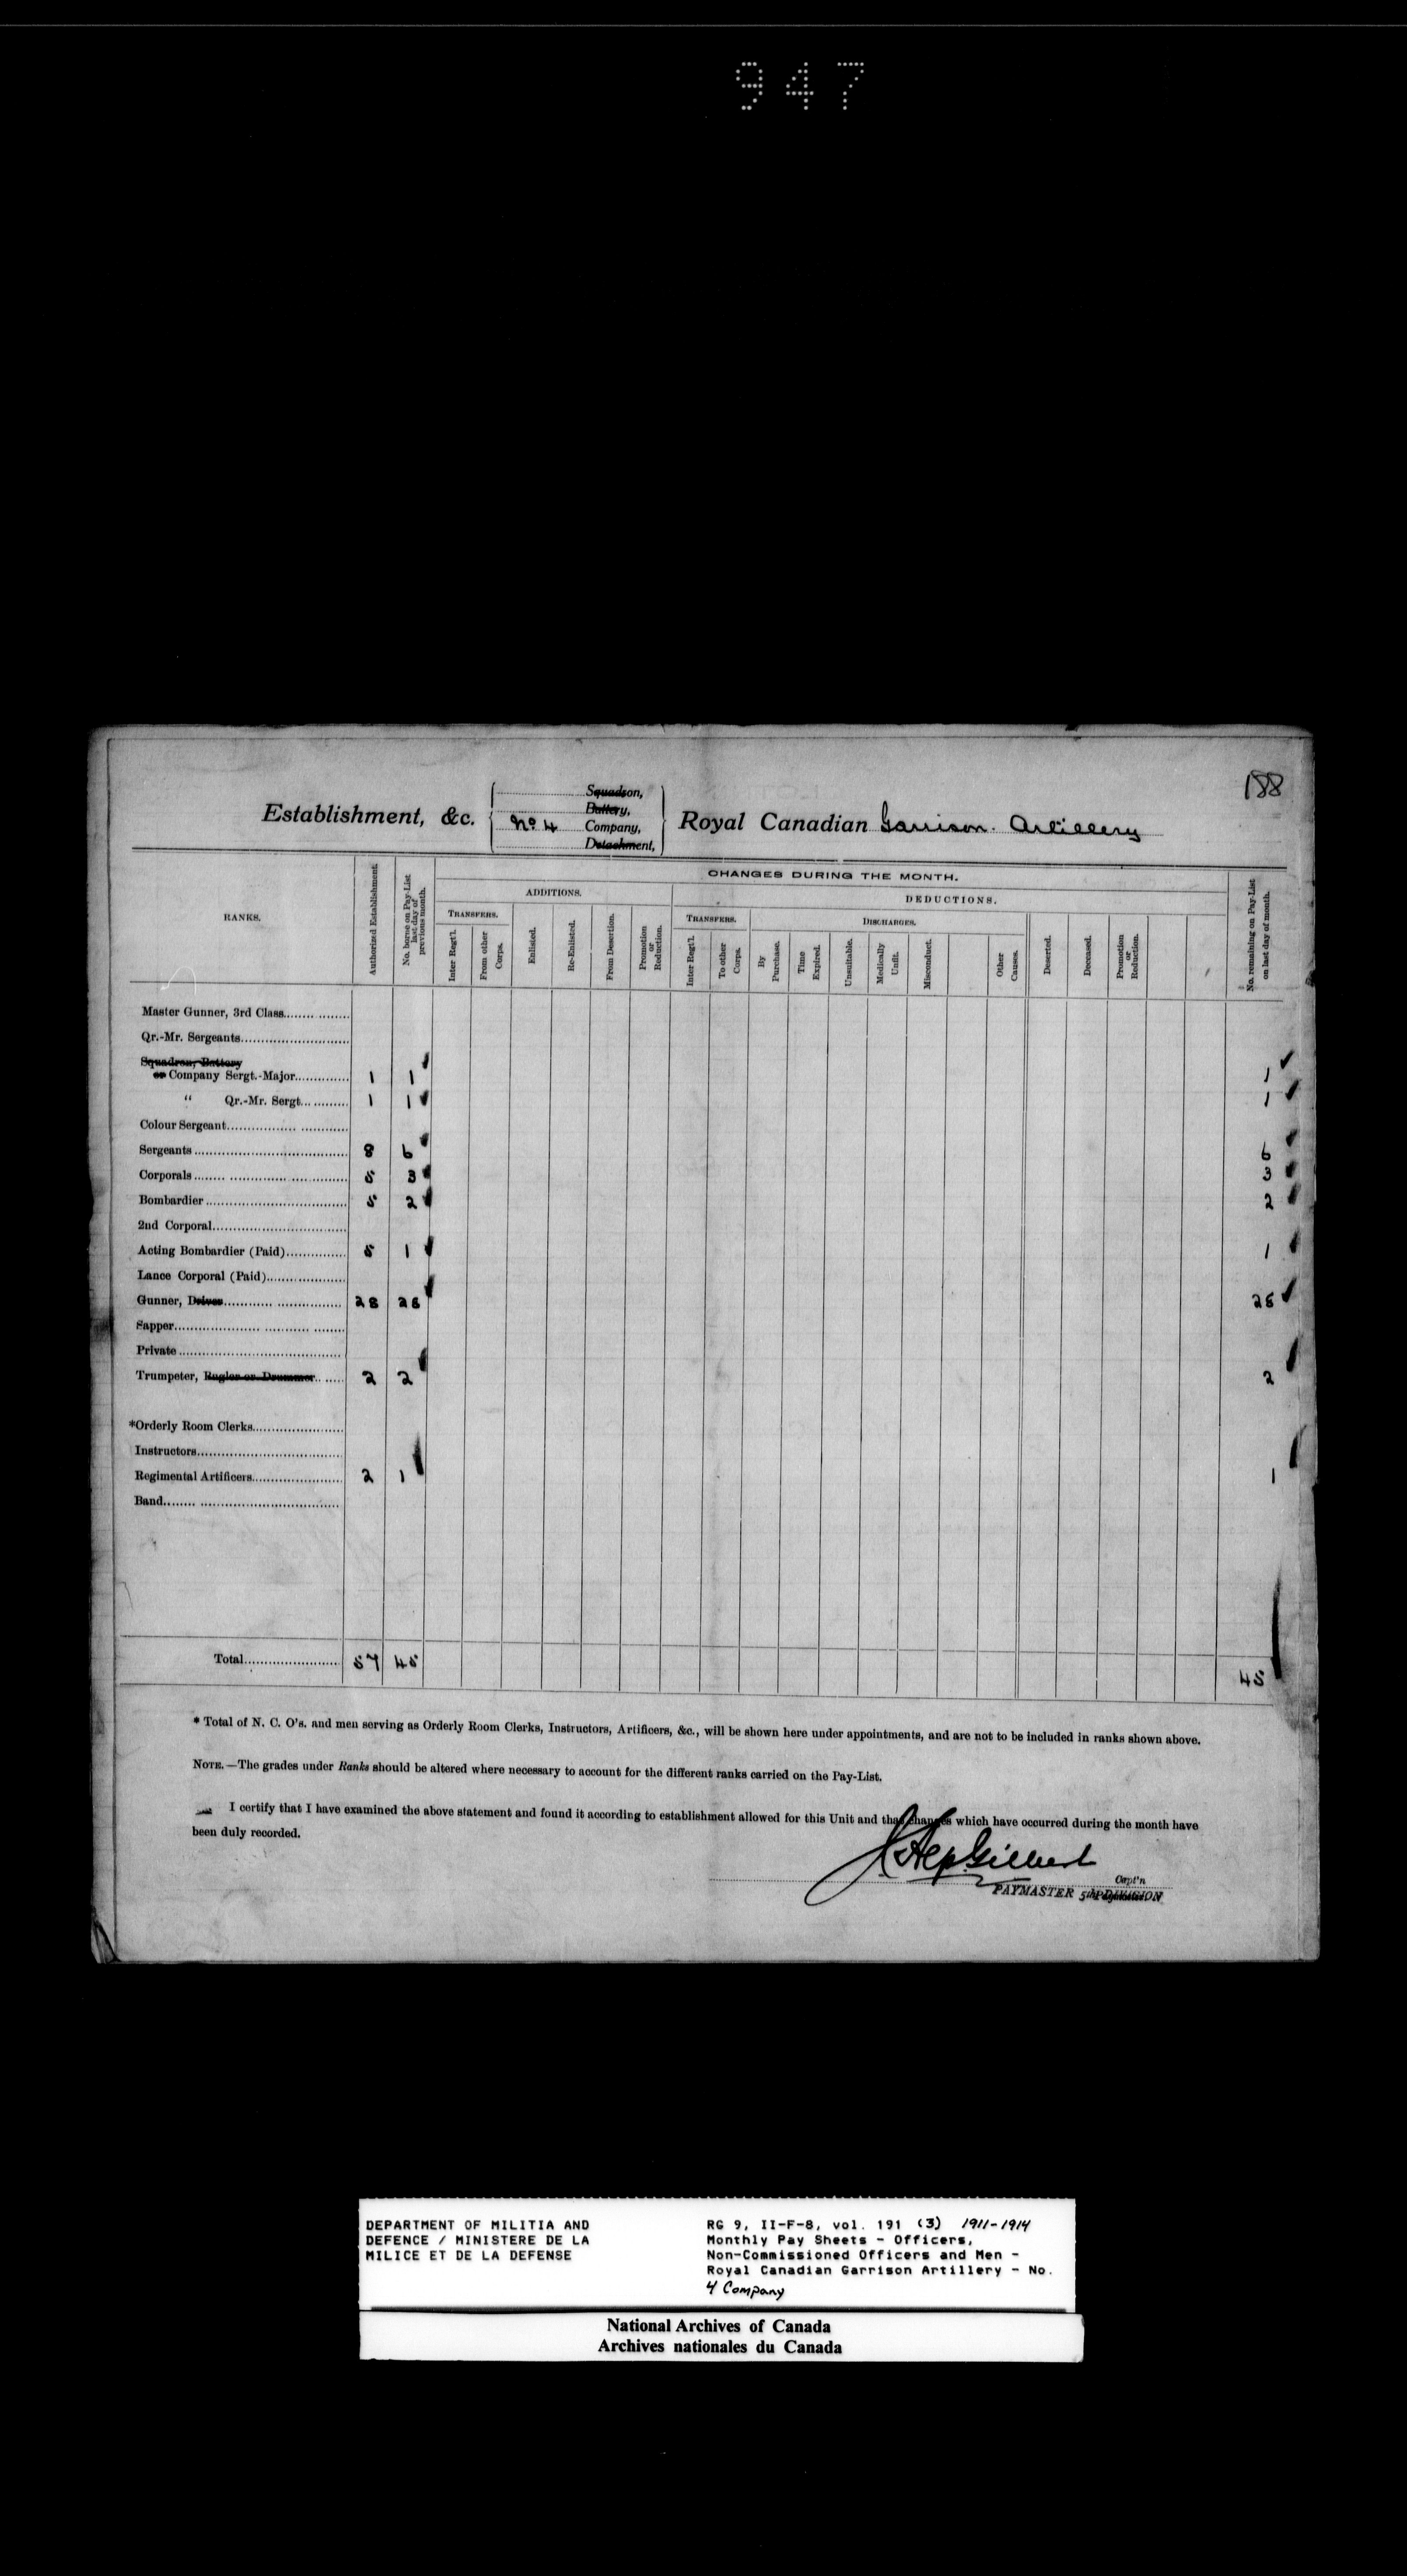 947
188
Establishment, &c. No 4 Squadron, Battery, Company, Detachment, Royal Canadian Garrison Artillery
RANKS.
Authorized Establishment.
No. borne on Pay-List last day of previous month.
CHANGES DURING THE MONTH.
ADDITIONS.
DEDUCTIONS.
TRANSFERS.
Inter Regt'l.
From other Corps.
Enlisted.
Re-Enlisted.
From Desertion.
Promotion or Reduction.
TRANSFERS.
Inter Regt'l.
To other Corps.
DISCHARGES.
By Purchase.
Time Expired.
Unsuitable.
Medically Unfit.
Misconduct.
Other Causes.
Deserted.
Deceased.
Promotion or Reduction.
No. remaining on Pay-List on last day of month.
Master Gunner, 3rd Class
Qr.-Mr. Sergeants
Squadron, Battery
or Company Sergt.-Major 1 1 1
" Qr.-Mr. Sergt. 1 1 1
Colour Sergeant
Sergeants 8 6 6
Corporals 5 3 3
Bombardier 5 2 2
2nd Corporal
Acting Bombardier (Paid) 5 1 1
Lance Corporal (Paid)
Gunner, Driver 28 28 28
Sapper
Private
Trumpeter, Bugler or Drummer 2 2 2
*Orderly Room Clerks
Instructors
Regimental Artificers 2 1 1
Band
Total 57 45 45
* Total of N. C. O's. and men serving as Orderly Room Clerks, Instructors, Artificers, &c., will be shown here under appointments, and are not to be included in ranks shown above.
NOTE.—The grades under Ranks should be altered where necessary to account for the different ranks carried on the Pay-List.
I certify that I have examined the above statement and found it according to establishment allowed for this Unit and that changes which have occurred during the month have
been duly recorded.
Gilbert
Capt'n
PAYMASTER 5th DIVISION
DEPARTMENT OF MILITIA AND
DEFENCE / MINISTERE DE LA
MILICE ET DE LA DEFENSE
RG 9, II-F-8, vol. 191 (3) 1911-1914
Monthly Pay Sheets - Officers,
Non-Commissioned Officers and Men -
Royal Canadian Garrison Artillery - No.
4 Company
National Archives of Canada
Archives nationales du Canada